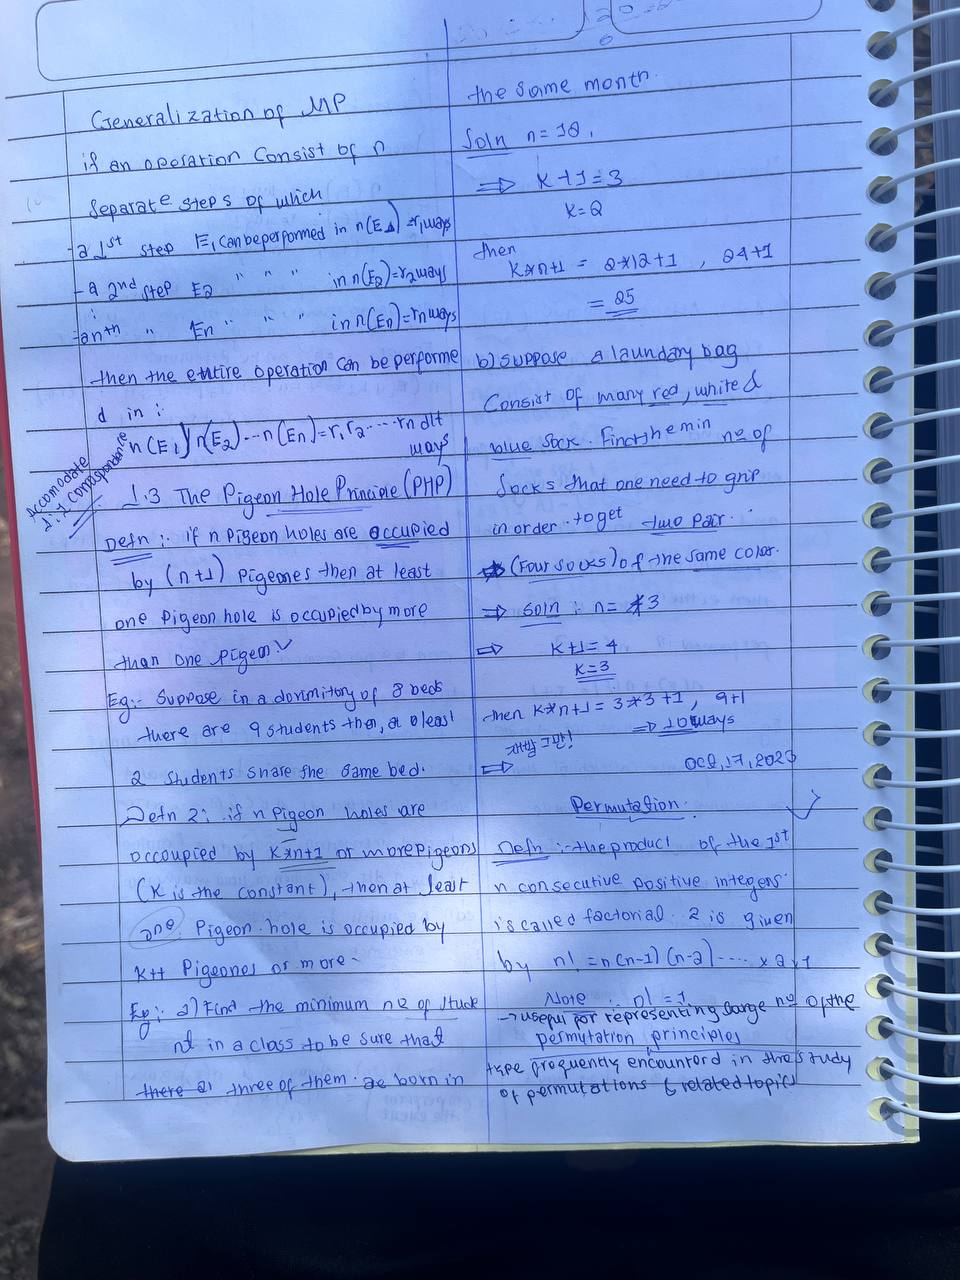 Generalization of MP
if an operation Consist of n
Separate steps of which
-a 1st step E1 can be performed in n(E1)=r1 ways
-a 2nd step E2 " " " in n(E2)=r2 ways
:
-an nth " En " " " in n(En)=rn ways
then the entire operation can be performe
d in :
n(E1) n(E2)...n(En)=r1 r2 .... rn dlt
ways
Accomodate
1:1 correspondence
1.3 The Pigeon Hole Principle (PHP)
Defn :- if n pigeon holes are occupied
by (n+1) pigeones then at least
one pigeon hole is occupied by more
than one pigeon
Eg:- Suppose in a dormitory of 8 beds
there are 9 students then, at least
2 students share the same bed.
Defn 2: if n pigeon holes are
occoupied by K*n+1 or more pigeons
(K is the constant), then at least
one pigeon hole is occupied by
K+1 Pigeones or more.
Eg: a) Find the minimum no of stude
nt in a class to be sure that
there at three of them are born in
the same month.
Soln n=12,
⇒ K+1=3
K=2
then
K*n+1 = 2*12+1 , 24+1
= 25
b) Suppose a laundary bag
Consist of many red, white &
blue sock. Find the min no of
Socks that one need to grip
in order to get two pair.
(Four socks) of the same color.
⇒ soln : n= 3
⇒ K+1=4
K=3
then K*n+1 = 3*3+1, 9+1
⇒ 10 ways
제발 그만!
⇒
Oct, 17, 2023
Permutation.
Defn :- the product of the 1st
n consecutive positive integers
is called factorial. 2 is given
by n! = n(n-1)(n-2)..... x 2x1
Note : 0! = 1
→ useful for representing large no of the
permutation principles
type frequently encounterd in the study
of permutations & related topics